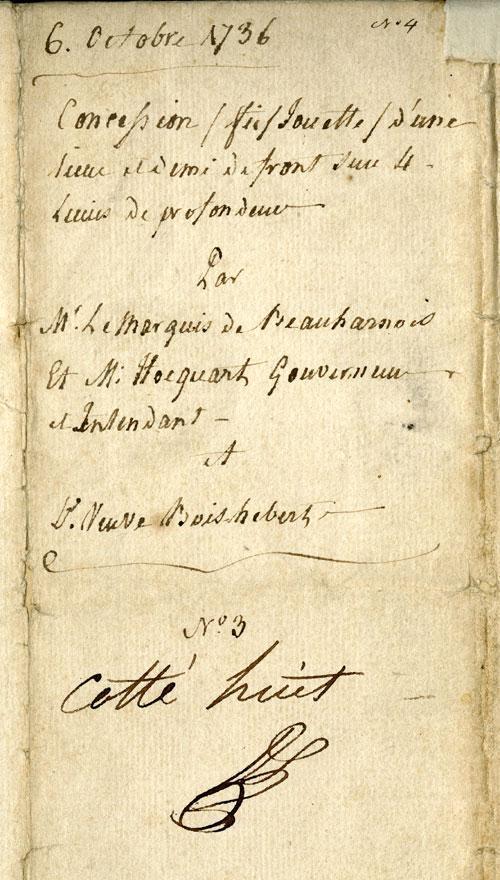 N.o 4
6. Octobre 1736
Concession / d'une
lieue et demi de front sur 4
Lieues de profondeur
Par
Mr. Le Marquis de Beauharnois
Et Mr. Hocquart Gouverneur
et Intendant
et
De. Veuve Boishebert
No. 3
Cotté huit